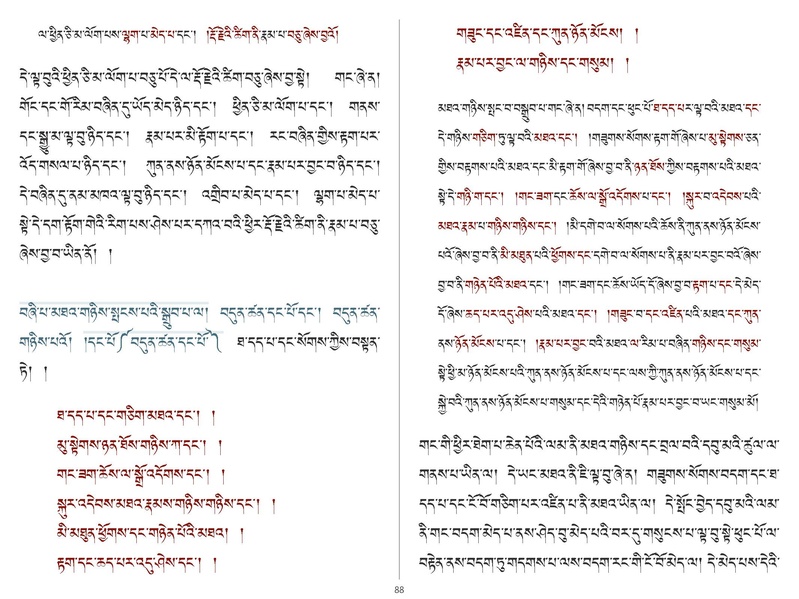 ལ་ཕྱིན་ཅི་མ་ལོག་པས་ལྷག་པ་མེད་པ་དང་། །རྡོ་རྗེའི་ཚིག་ནི་རྣམ་པ་བཅུ་ཞེས་བྱའོ།
དེ་ལྟ་བུའི་ཕྱིན་ཅི་མ་ལོག་པ་བཅུ་པོ་དེ་ལ་རྡོ་རྗེའི་ཚིག་བཅུ་ཞེས་བྱ་སྟེ། གང་ཞེ་ན།
གོང་དང་གོ་རིམ་བཞིན་དུ་ཡོད་མེད་ཉིད་དང་། ཕྱིན་ཅི་མ་ལོག་པ་དང་། གནས་
དང་སྒྱུ་མ་ལྟ་བུ་ཉིད་དང་། རྣམ་པར་མི་རྟོག་པ་དང་། རང་བཞིན་གྱིས་རྟག་པར་
འོད་གསལ་བ་ཉིད་དང་། ཀུན་ནས་ཉོན་མོངས་པ་དང་རྣམ་པར་བྱང་བ་ཉིད་དང་།
དེ་བཞིན་དུ་ནམ་མཁའ་ལྟ་བུ་ཉིད་དང་། འགྲིབ་པ་མེད་པ་དང་། ལྷག་པ་མེད་པ་
སྟེ་དེ་དག་རྟོག་གེའི་རིག་པས་ཤེས་པར་དཀའ་བའི་ཕྱིར་རྡོ་རྗེའི་ཚིག་ནི་རྣམ་པ་བཅུ་
ཞེས་བྱ་བ་ཡིན་ནོ། །
བཞི་པ་མཐའ་གཉིས་སྤངས་པའི་སྒྲུབ་པ་ལ། བདུན་ཚན་དང་པོ་དང་། བདུན་ཚན་
གཉིས་པའོ། །དང་པོ་༼བདུན་ཚན་དང་པོ་༽ ཐ་དད་པ་དང་སོགས་ཀྱིས་བསྟན་
ཏེ། །
ཐ་དད་པ་དང་གཅིག་མཐའ་དང་། །
མུ་སྟེགས་ཉན་ཐོས་གཉིས་ཀ་དང་། །
གང་ཟག་ཆོས་ལ་སྒྲོ་འདོགས་དང་། །
སྐུར་འདེབས་མཐའ་རྣམས་གཉིས་གཉིས་དང་། །
མི་མཐུན་ཕྱོགས་དང་གཉེན་པོའི་མཐའ། །
རྟག་དང་ཆད་པར་འདུ་ཤེས་དང་། །
གཟུང་དང་འཛིན་དང་ཀུན་ཉོན་མོངས། །
རྣམ་པར་བྱང་ལ་གཉིས་དང་གསུམ། །
མཐའ་གཉིས་སྤང་བ་བསྒྲུབ་པ་གང་ཞེ་ན། བདག་དང་ཕུང་པོ་ཐ་དད་པར་ལྟ་བའི་མཐའ་དང་
དེ་གཉིས་གཅིག་ཏུ་ལྟ་བའི་མཐའ་དང་། །གཟུགས་སོགས་རྟག་གོ་ཞེས་པ་མུ་སྟེགས་ཅན་
གྱིས་བརྟགས་པའི་མཐའ་དང་མི་རྟག་གོ་ཞེས་བྱ་བ་ནི་ཉན་ཐོས་ཀྱིས་བརྟགས་པའི་མཐའ་
སྟེ་དེ་གཉི་ག་དང་། །གང་ཟག་དང་ཆོས་ལ་སྒྲོ་འདོགས་པ་དང་། །སྐུར་བ་འདེབས་པའི་
མཐའ་རྣམ་པ་གཉིས་གཉིས་དང་། །མི་དགེ་བ་ལ་སོགས་པའི་ཆོས་ནི་ཀུན་ནས་ཉོན་མོངས་
པའོ་ཞེས་བྱ་བ་ནི་མི་མཐུན་པའི་ཕྱོགས་དང་དགེ་བ་ལ་སོགས་པ་ནི་རྣམ་པར་བྱང་བའོ་ཞེས་
བྱ་བ་ནི་གཉེན་པོའི་མཐའ་དང་། །གང་ཟག་དང་ཆོས་ཡོད་དོ་ཞེས་བྱ་བ་རྟག་པ་དང་དེ་མེད་
དོ་ཞེས་ཆད་པར་འདུ་ཤེས་པའི་མཐའ་དང་། །གཟུང་བ་དང་འཛིན་པའི་མཐའ་དང་ཀུན་
ནས་ཉོན་མོངས་པ་དང་། །རྣམ་པར་བྱང་བའི་མཐའ་ལ་རིམ་པ་བཞིན་གཉིས་དང་གསུམ་
སྟེ་ཕྱི་མ་ཉོན་མོངས་པའི་ཀུན་ནས་ཉོན་མོངས་པ་དང་ལས་ཀྱི་ཀུན་ནས་ཉོན་མོངས་པ་དང་
སྐྱེ་བའི་ཀུན་ནས་ཉོན་མོངས་པ་གསུམ་དང་དེའི་གཉེན་པོ་རྣམ་པར་བྱང་བ་ཡང་གསུམ་མོ།
གང་གི་ཕྱིར་ཐེག་པ་ཆེན་པོའི་ལམ་ནི་མཐའ་གཉིས་དང་བྲལ་བའི་དབུ་མའི་ཚུལ་ལ་
གནས་པ་ཡིན་ལ། དེ་ཡང་མཐའ་ནི་ཇི་ལྟ་བུ་ཞེ་ན། གཟུགས་སོགས་བདག་དང་ཐ་
དད་པ་དང་ངོ་བོ་གཅིག་པར་འཛིན་པ་ནི་མཐའ་ཡིན་ལ། དེ་སྤོང་བྱེད་དབུ་མའི་ལམ་
ནི་གང་བདག་མེད་པ་ནས་ཤེད་བུ་མེད་པའི་བར་དུ་གསུངས་པ་ལྟ་བུ་སྟེ་ཕུང་པོ་ལ་
བརྟེན་ནས་བདག་ཏུ་གདགས་པ་ལས་བདག་རང་གི་ངོ་བོ་མེད་ལ། དེ་མེད་པས་དེའི་
88